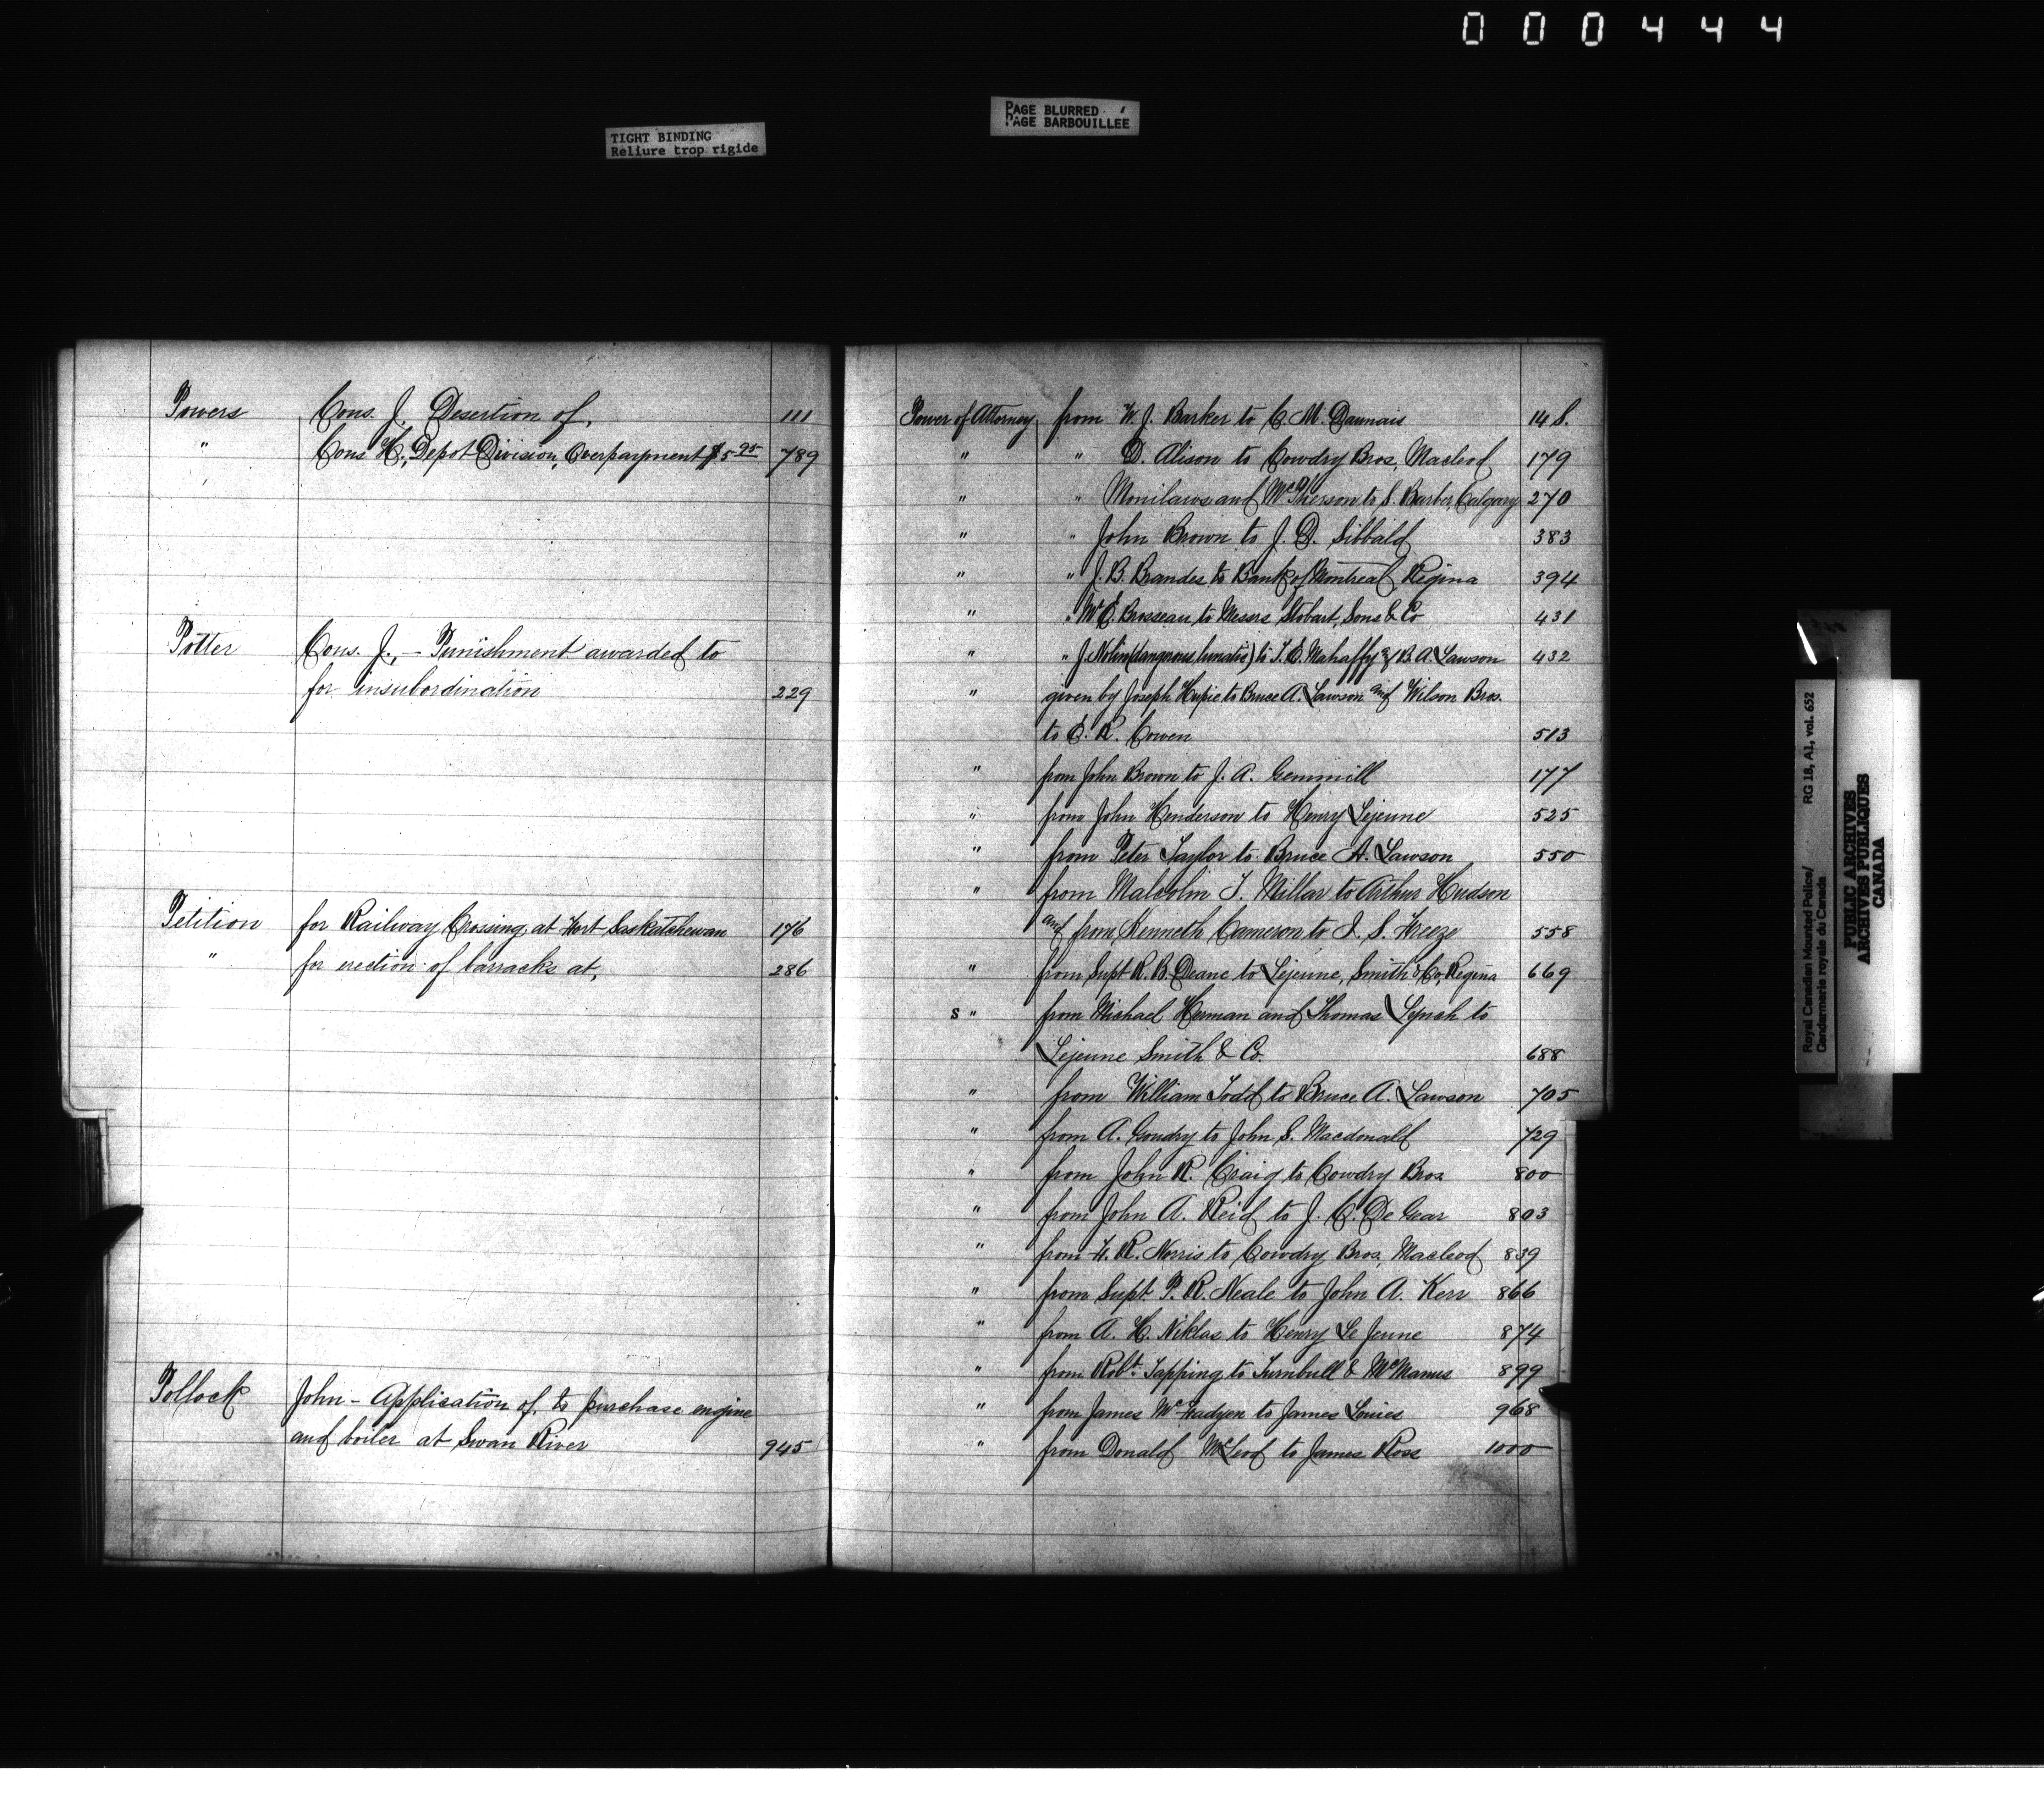 000444
TIGHT BINDING
Reliure trop rigide
PAGE BLURRED
PAGE BARBOUILLÉE
Powers Cons. J. Desertion of, 111
" Cons H., Depot Division, Overpayment $5 95 789
Potter Cons. J., - Punishment awarded to
for insubordination 229
Petition for Railway Crossing, at Fort Saskatchewan 176
" for erection of barracks at, 286
Pollock John - Application of, to purchase engine
and boiler at Swan River 945
Power of Attorney from W. J. Barker to C. M. Daunais 148.
" " D. Alison to Cowdry Bros, Macleod 179
" " Monilaws and McPherson to S. Barber, Calgary 270
" " John Brown to J. D. Sibbald 383
" " J. B. Brandes to Bank of Montreal Regina 394
" " Brosseau to Messrs Stobart, Sons & Co 431
" " J. Nolin (dangerous lunatic) to T. C. Mahaffy & B. A. Lawson 432
" given by Joseph Hupie to Bruce A. Lawson and Wilson Bros.
to E. R. Cowen 513
" from John Brown to J. A. Gemmill 177
" from John Henderson to Henry Lejeune 525
" from Peter Taylor to Bruce A. Lawson 550
" from Malcolm T. Millar to Arthur Hudson
and from Kenneth Cameron to I. S. Freeze 558
" from Supt R. B. Deane to Lejeune, Smith & Co, Regina 669
S " from Michael Herman and Thomas Lynch to
Lejeune Smith & Co. 688
" from William Todd to Bruce A. Lawson 705
" from A. Goudry to John S. Macdonald 729
" from John R. Craig to Cowdry Bros 800
" from John A. Reid to J. C. De Gear 803
" from F. R. Norris to Cowdry Bros, Macleod 839
" from Supt P. R. Neale to John A. Kerr 866
" from A. H. Niklas to Henry Le Jeune 874
" from Robt. Tapping to Turnbull & McManus 899
" from James McFadyen to James Louies 968
" from Donald McLeod to James Ross 1000
Royal Canadian Mounted Police/ RG 18, A1, vol. 652
Gendarmerie royale du Canada
PUBLIC ARCHIVES
ARCHIVES PUBLIQUES
CANADA